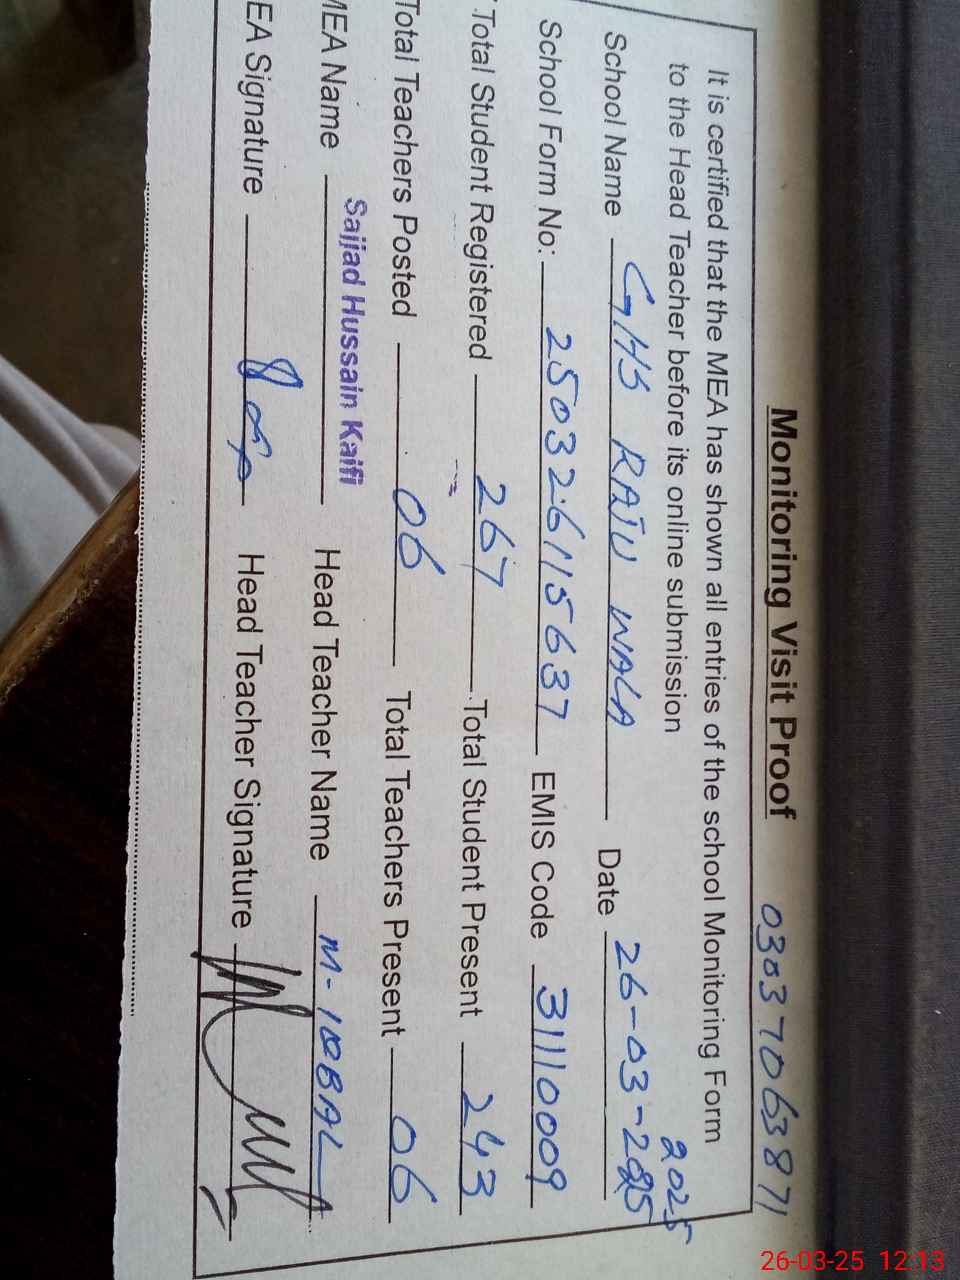 Monitoring Visit Proof 03037706387 1
It is certified that the MEA has shown all entries of the school Monitoring Form
to the Head Teacher before its online submission
2025
School Name GHS RAJU WALA Date 26-03-2025
School Form No: 250326115637 EMIS Code 31110009
Total Student Registered 267 Total Student Present 243
Total Teachers Posted 06 Total Teachers Present 06
MEA Name Sajjad Hussain Kaifi Head Teacher Name M- IQBAL
EA Signature Head Teacher Signature
26-03-25 12:13